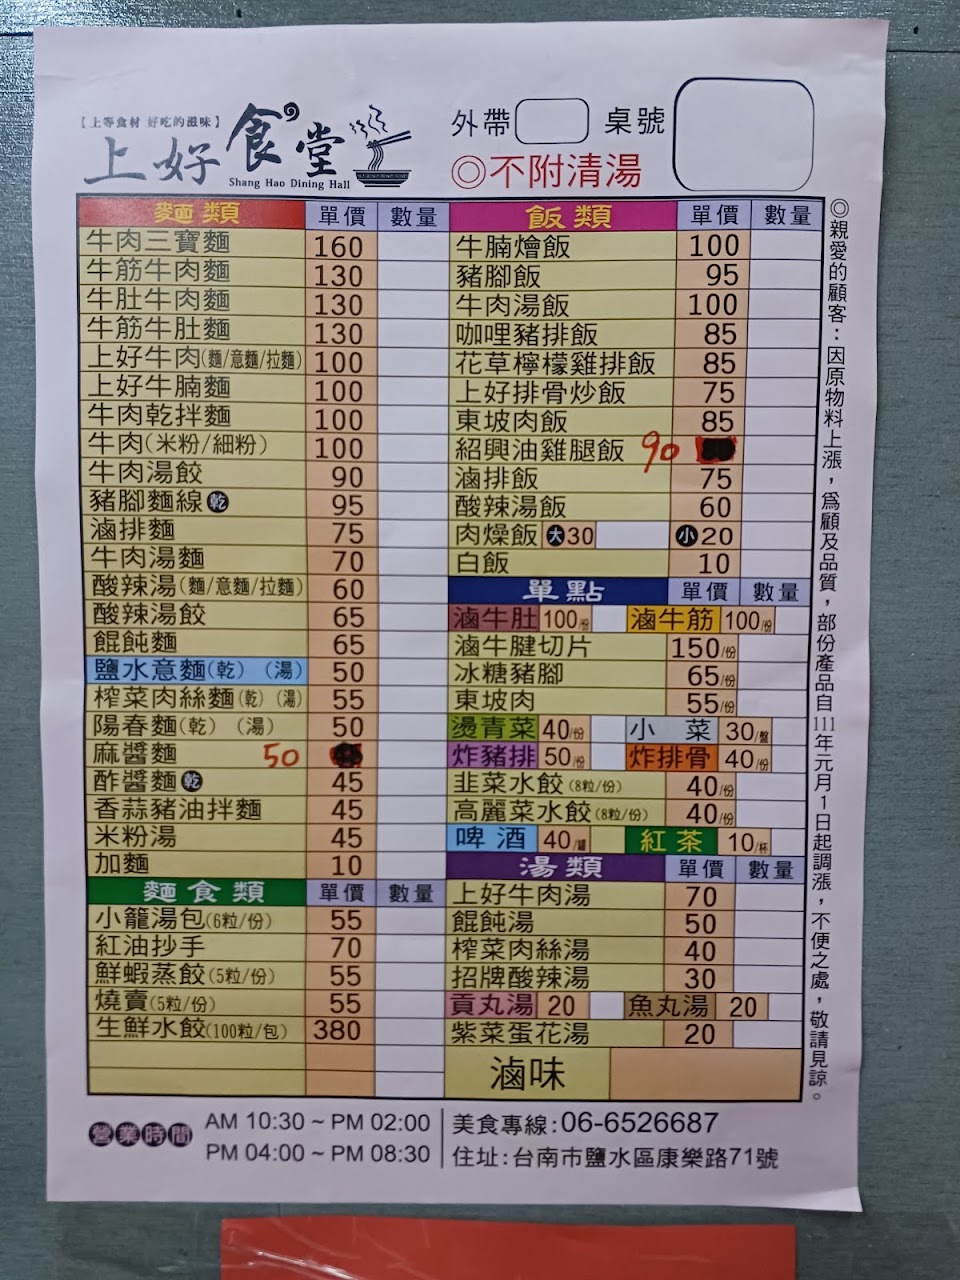 【上等食材 好吃的滋味】
上好食堂
Shang Hao Dining Hall
外帶 桌號
◎不附清湯
麵類 單價 數量
牛肉三寶麵 160
牛筋牛肉麵 130
牛肚牛肉麵 130
牛筋牛肚麵 130
上好牛肉(麵/意麵/拉麵) 100
上好牛腩麵 100
牛肉乾拌麵 100
牛肉(米粉/細粉) 100
牛肉湯餃 90
豬腳麵線乾 95
滷排麵 75
牛肉湯麵 70
酸辣湯(麵/意麵/拉麵) 60
酸辣湯餃 65
餛飩麵 65
鹽水意麵(乾)(湯) 50
榨菜肉絲麵(乾)(湯) 55
陽春麵(乾)(湯) 50
麻醬麵 50
酢醬麵乾 45
香蒜豬油拌麵 45
米粉湯 45
加麵 10
麵食類 單價 數量
小籠湯包(6粒/份) 55
紅油抄手 70
鮮蝦蒸餃(5粒/份) 55
燒賣(5粒/份) 55
生鮮水餃(100粒/包) 380
飯類 單價 數量
牛腩燴飯 100
豬腳飯 95
牛肉湯飯 100
咖哩豬排飯 85
花草檸檬雞排飯 85
上好排骨炒飯 75
東坡肉飯 85
紹興油雞腿飯 90
滷排飯 75
酸辣湯飯 60
肉燥飯 大30 小20
白飯 10
單點 單價 數量
滷牛肚 100/份 滷牛筋 100/份
滷牛腱切片 150/份
冰糖豬腳 65/份
東坡肉 55/份
燙青菜 40/份 小菜 30/盤
炸豬排 50/份 炸排骨 40/份
韭菜水餃(8粒/份) 40/份
高麗菜水餃(8粒/份) 40/份
啤酒 40/罐 紅茶 10/杯
湯類 單價 數量
上好牛肉湯 70
餛飩湯 50
榨菜肉絲湯 40
招牌酸辣湯 30
貢丸湯 20 魚丸湯 20
紫菜蛋花湯 20
滷味
◎親愛的顧客：因原物料上漲，為顧及品質，部份產品自111年元月1日起調漲，不便之處，敬請見諒。
營業時間 AM 10:30 ~ PM 02:00
PM 04:00 ~ PM 08:30
美食專線:06-6526687
住址:台南市鹽水區康樂路71號